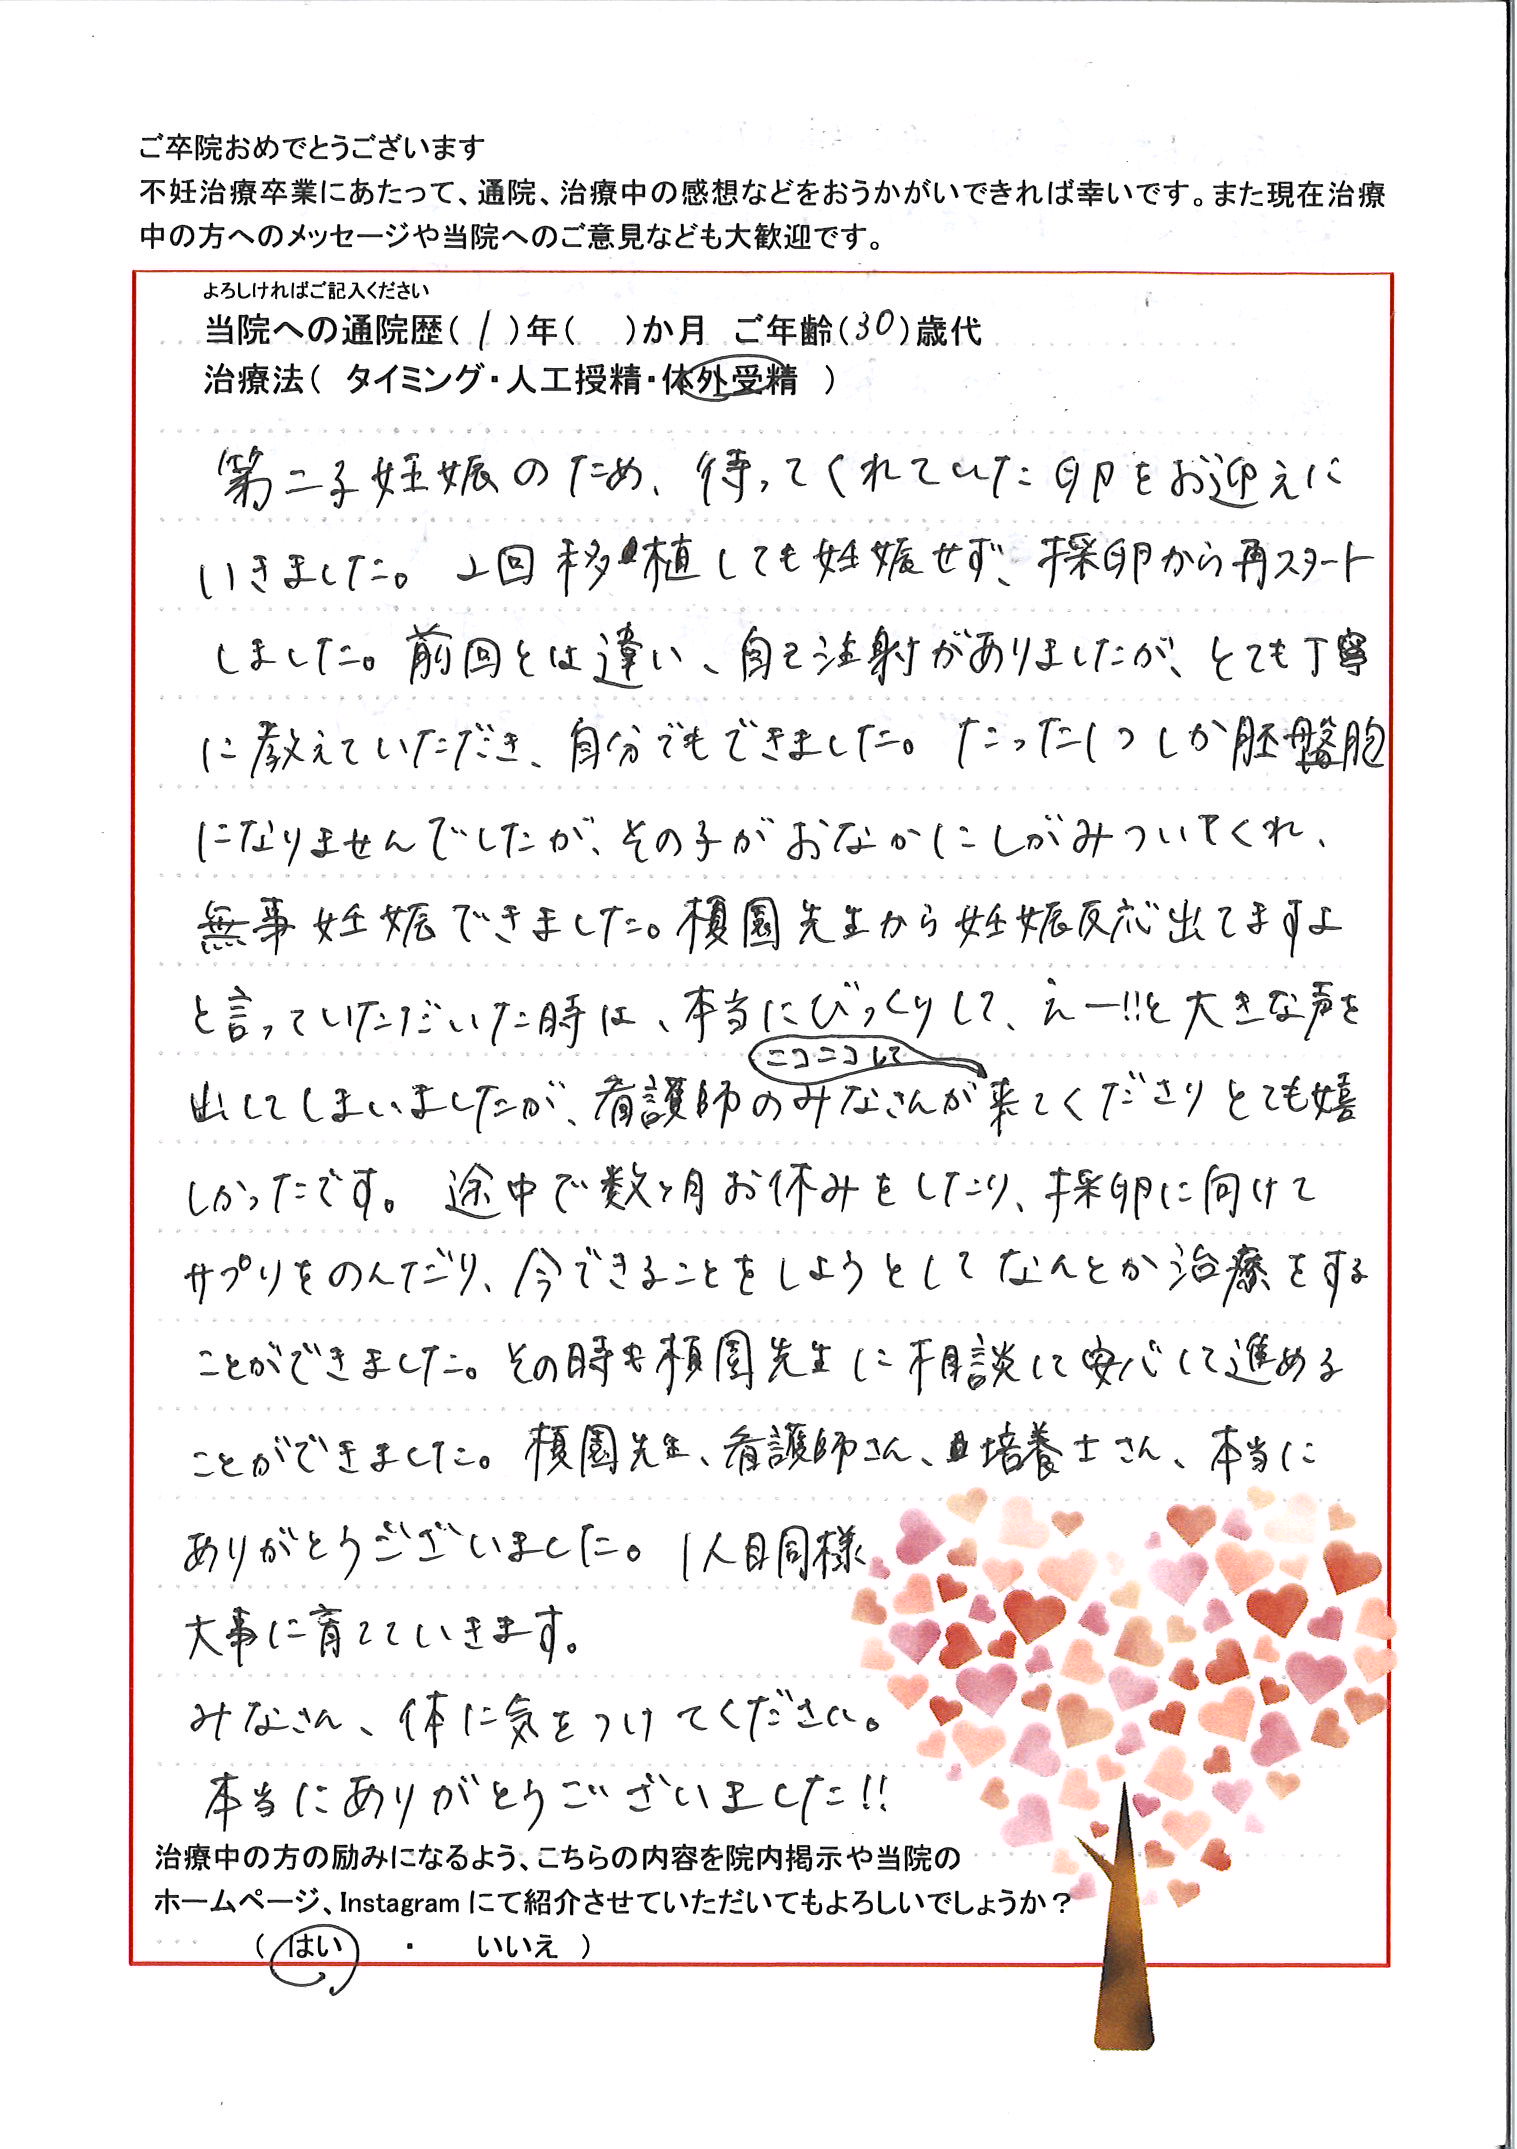 ご卒院おめでとうございます
不妊治療卒業にあたって、通院、治療中の感想などをおうかがいできれば幸いです。また現在治療
中の方へのメッセージや当院へのご意見なども大歓迎です。
よろしければご記入ください
当院への通院歴(1)年( )か月 ご年齢(30)歳代
治療法( タイミング・人工授精・体外受精 )
第二子妊娠のため、待ってくれていた卵をお迎えに
いきました。2回移植しても妊娠せず、採卵から再スタート
しました。前回とは違い、自己注射がありましたが、とても丁寧
に教えていただき、自分でもできました。たった1つしか胚盤胞
になりませんでしたが、その子がおなかにしがみついてくれ、
無事妊娠できました。榎園先生から妊娠反応出てますよ
と言っていただいた時は、本当にびっくりして、えー!!と大きな声を
ニコニコして
出してしまいましたが、看護師のみなさんが来てくださりとても嬉
しかったです。途中で数ヶ月お休みをしたり、採卵に向けて
サプリをのんだり、今できることをしようとしてなんとか治療をする
ことができました。その時も榎園先生に相談して安心して進める
ことができました。榎園先生、看護師さん、培養士さん、本当に
ありがとうございました。1人目同様
大事に育てていきます。
みなさん、体に気をつけてください。
本当にありがとうございました!!
治療中の方の励みになるよう、こちらの内容を院内掲示や当院の
ホームページ、Instagramにて紹介させていただいてもよろしいでしょうか?
( はい ・ いいえ )